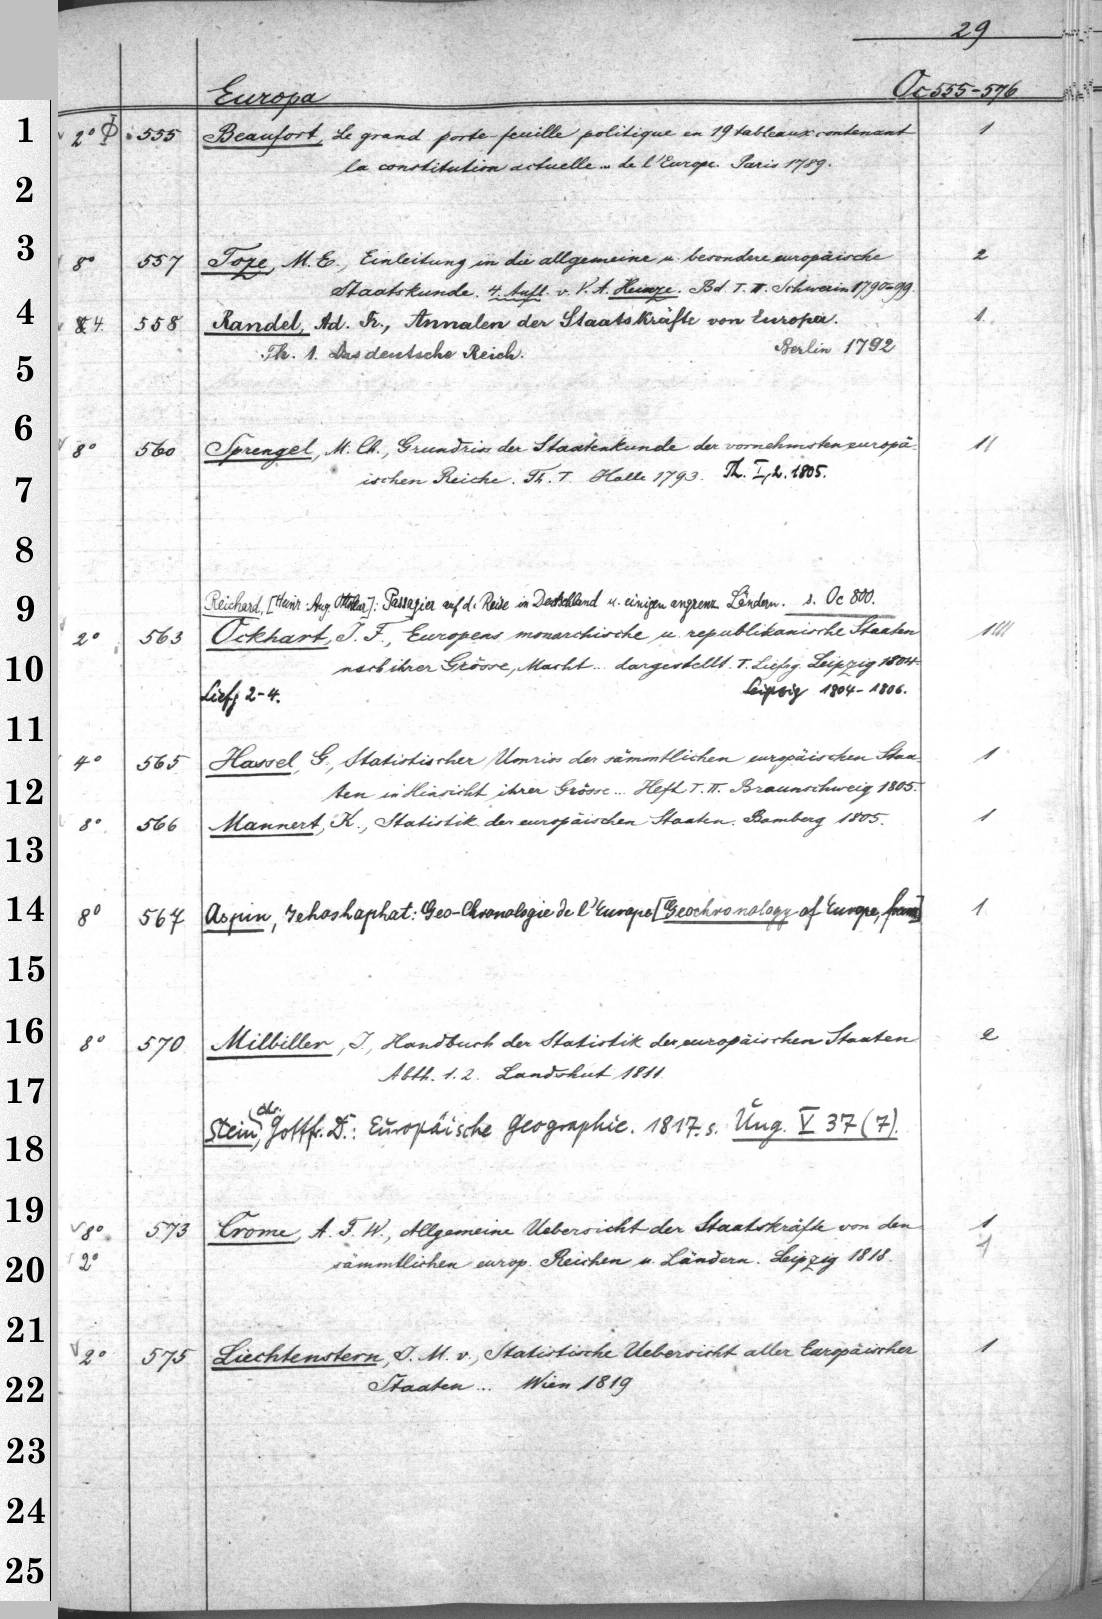 29
Europa Oc 555-576
1 2° 555 Beaufort, Le grand porte-feuille politique en 19 tableaux contenant 1
2 la constitution actuelle... de l'Europe. Paris 1789.
3 8° 557 Toze, M. E., Einleitung in die allgemeine u. besondere europäische 2
Staatskunde. 4. Aufl. v. V. A. Heinze. Bd. I. II. Schwerin 1790-99.
4 4 558 Randel, Ad. Fr., Annalen der Staatskräfte von Europa. 1
5 Th. 1. Das deutsche Reich. Berlin 1792
6 8° 560 Sprengel, M. Ch., Grundriss der Staatenkunde der vornehmsten europä- 11
7 ischen Reiche. Th. I. Halle 1793. Th. I, 2. 1805.
8
9 Reichard, [Heinr. Aug. Ottokar]: Passagier auf d. Reise in Deutschland u. einigen angrenz. Ländern. s. Oc 800.
2° 563 Ockhart, J. F., Europens monarchische u. republikanische Staaten 1111
10 nach ihrer Grösse, Macht... dargestellt. I. Liefg. Leipzig 1804-
Liefg 2-4. Leipzig 1804-1806.
11
4° 565 Hassel, G., Statistischer Umriss der sämmtlichen europäischen Staa- 1
12 ten in Hinsicht ihrer Grösse... Heft I. II. Braunschweig 1805.
8° 566 Mannert, K., Statistik der europäischen Staaten. Bamberg 1805. 1
13
14 8° 567 Aspin, Jehoshaphat: Geo-Chronologie de l'Europe [Geochronology of Europe, franz.] 1
15
16 8° 570 Milbiller, J., Handbuch der Statistik der europäischen Staaten 2
17 Abth. 1. 2. Landshut 1811
18 Stein, Chr. Gottfr. D.: Europäische Geographie. 1817. s. Ung. V 37 (7).
19 8° 573 Crome, A. F. W., Allgemeine Uebersicht der Staatskräfte von den 1
20 2° sämmtlichen europ. Reichen u. Ländern. Leipzig 1818. 1
21
2° 575 Liechtenstern, J. M. v., Statistische Uebersicht aller Europäischer 1
22 Staaten... Wien 1819
23
24
25